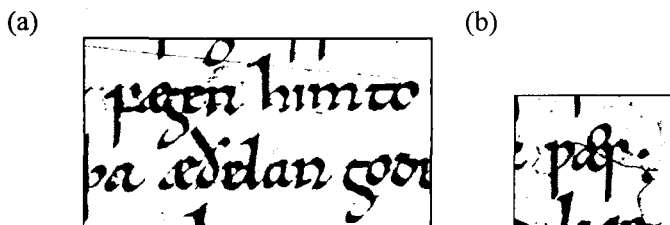 (a)
(b)
fægen him to
þa æðelan gode
ƿæs